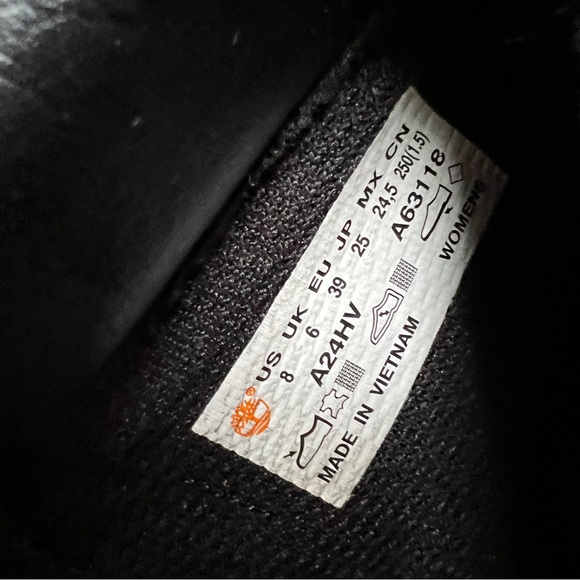 US UK EU JP MX CN
8 6 39 25 24,5 250(1.5)
A24HV A63118
WOMENS
MADE IN VIETNAM